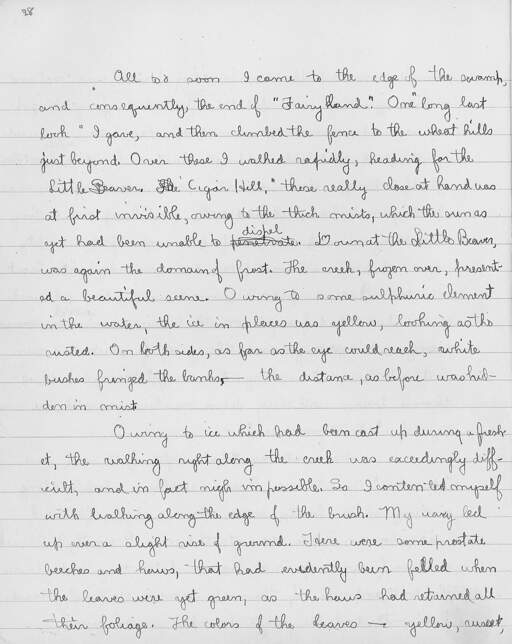 28
All too soon I came to the edge of the swamp,
and consequently, the end of "Fairyland". One "long last
look" I gave, and then climbed the fence to the wheat hills
just beyond. Over these I walked rapidly, heading for the
Little Beaver. The "Cigar Hill," these really close at hand was
at first invisible, owing to the thick mists, which the sun as
dispel
yet had been unable to penetrate. Down at the Little Beaver,
was again the domain of frost. The creek, frozen over, present-
ed a beautiful scene. Owing to some sulphuric element
in the water, the ice in places was yellow, looking as tho
rusted. On both sides, as far as the eye could reach, white
bushes fringed the banks, — the distance, as before was hid-
den in mist
Owing to ice which had been cast up during a fresh-
et, the walking right along the creek was exceedingly diff-
icult, and in fact nigh impossible. So I contented myself
with walking along the edge of the brush. My way led
up over a slight rise of ground. Here were some prostate
beeches and haws, that had evidently been felled when
the leaves were yet green, as the haws had retained all
their foliage. The colors of the leaves — yellow, russet,